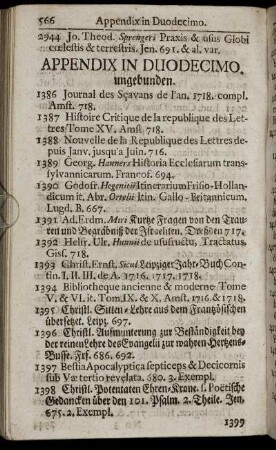 566 Appendix in Duodecimo.
2944 Jo. Theod. Sprengeri Praxis & usus Globi
cœlestis & terrestris. Jen. 691. & al. var.
APPENDIX IN DUODECIMO.
ungebunden.
1386 Journal des Sçavans de l'an. 1718. compl.
Amst. 718.
1387 Histoire Critique de la republique des Let-
tres Tome XV. Amst. 718.
1388 Nouvelle de la Republique des Lettres de-
puis Janv. jusqu'a Juin. 716.
1389 Georg. Hanneri Historia Ecclesiarum trans-
sylvanicarum. Francof. 694.
1390 Godofr. Hegenitii Itinerarium Frisio-Hollan-
dicum it. Abr. Ortelii Itin. Gallo-Britannicum.
Lugd. B. 667.
1391 Ad. Erdm. Mori Kurtze Fragen von den Trau-
ren und Begräbniß der Israeliten. Dreßden 717.
1392 Helfr. Ulr. Hunnii de usufructu, Tractatus.
Gisf. 718.
1393 Christ. Ernst. Sicul Leipziger Jahr-Buch Con-
tin. I. II. III. de A. 1716. 1717. 1718.
1394 Bibliotheque ancienne & moderne Tome
V. & VI. it. Tom. IX. & X. Amst. 1716. & 1718.
1395 Christl. Sitten-Lehre aus dem Französischen
übersetzet. Leipz. 697.
1396 Christl. Aufmunterung zur Beständigkeit bey
der reinen Lehre des Evangelii zur wahren Hertzens-
Busse. Frf. 686. 692.
1397 Bestia Apocalyptica septiceps & Decicornis
sub Væ tertio revelata. 680. 3. Exempl.
1398 Christl. Potentaten Ehren-Krone. s. Poëtische
Gedancken über den 101. Psalm. 2. Theile. Jen.
675. 2. Exempl.
1399